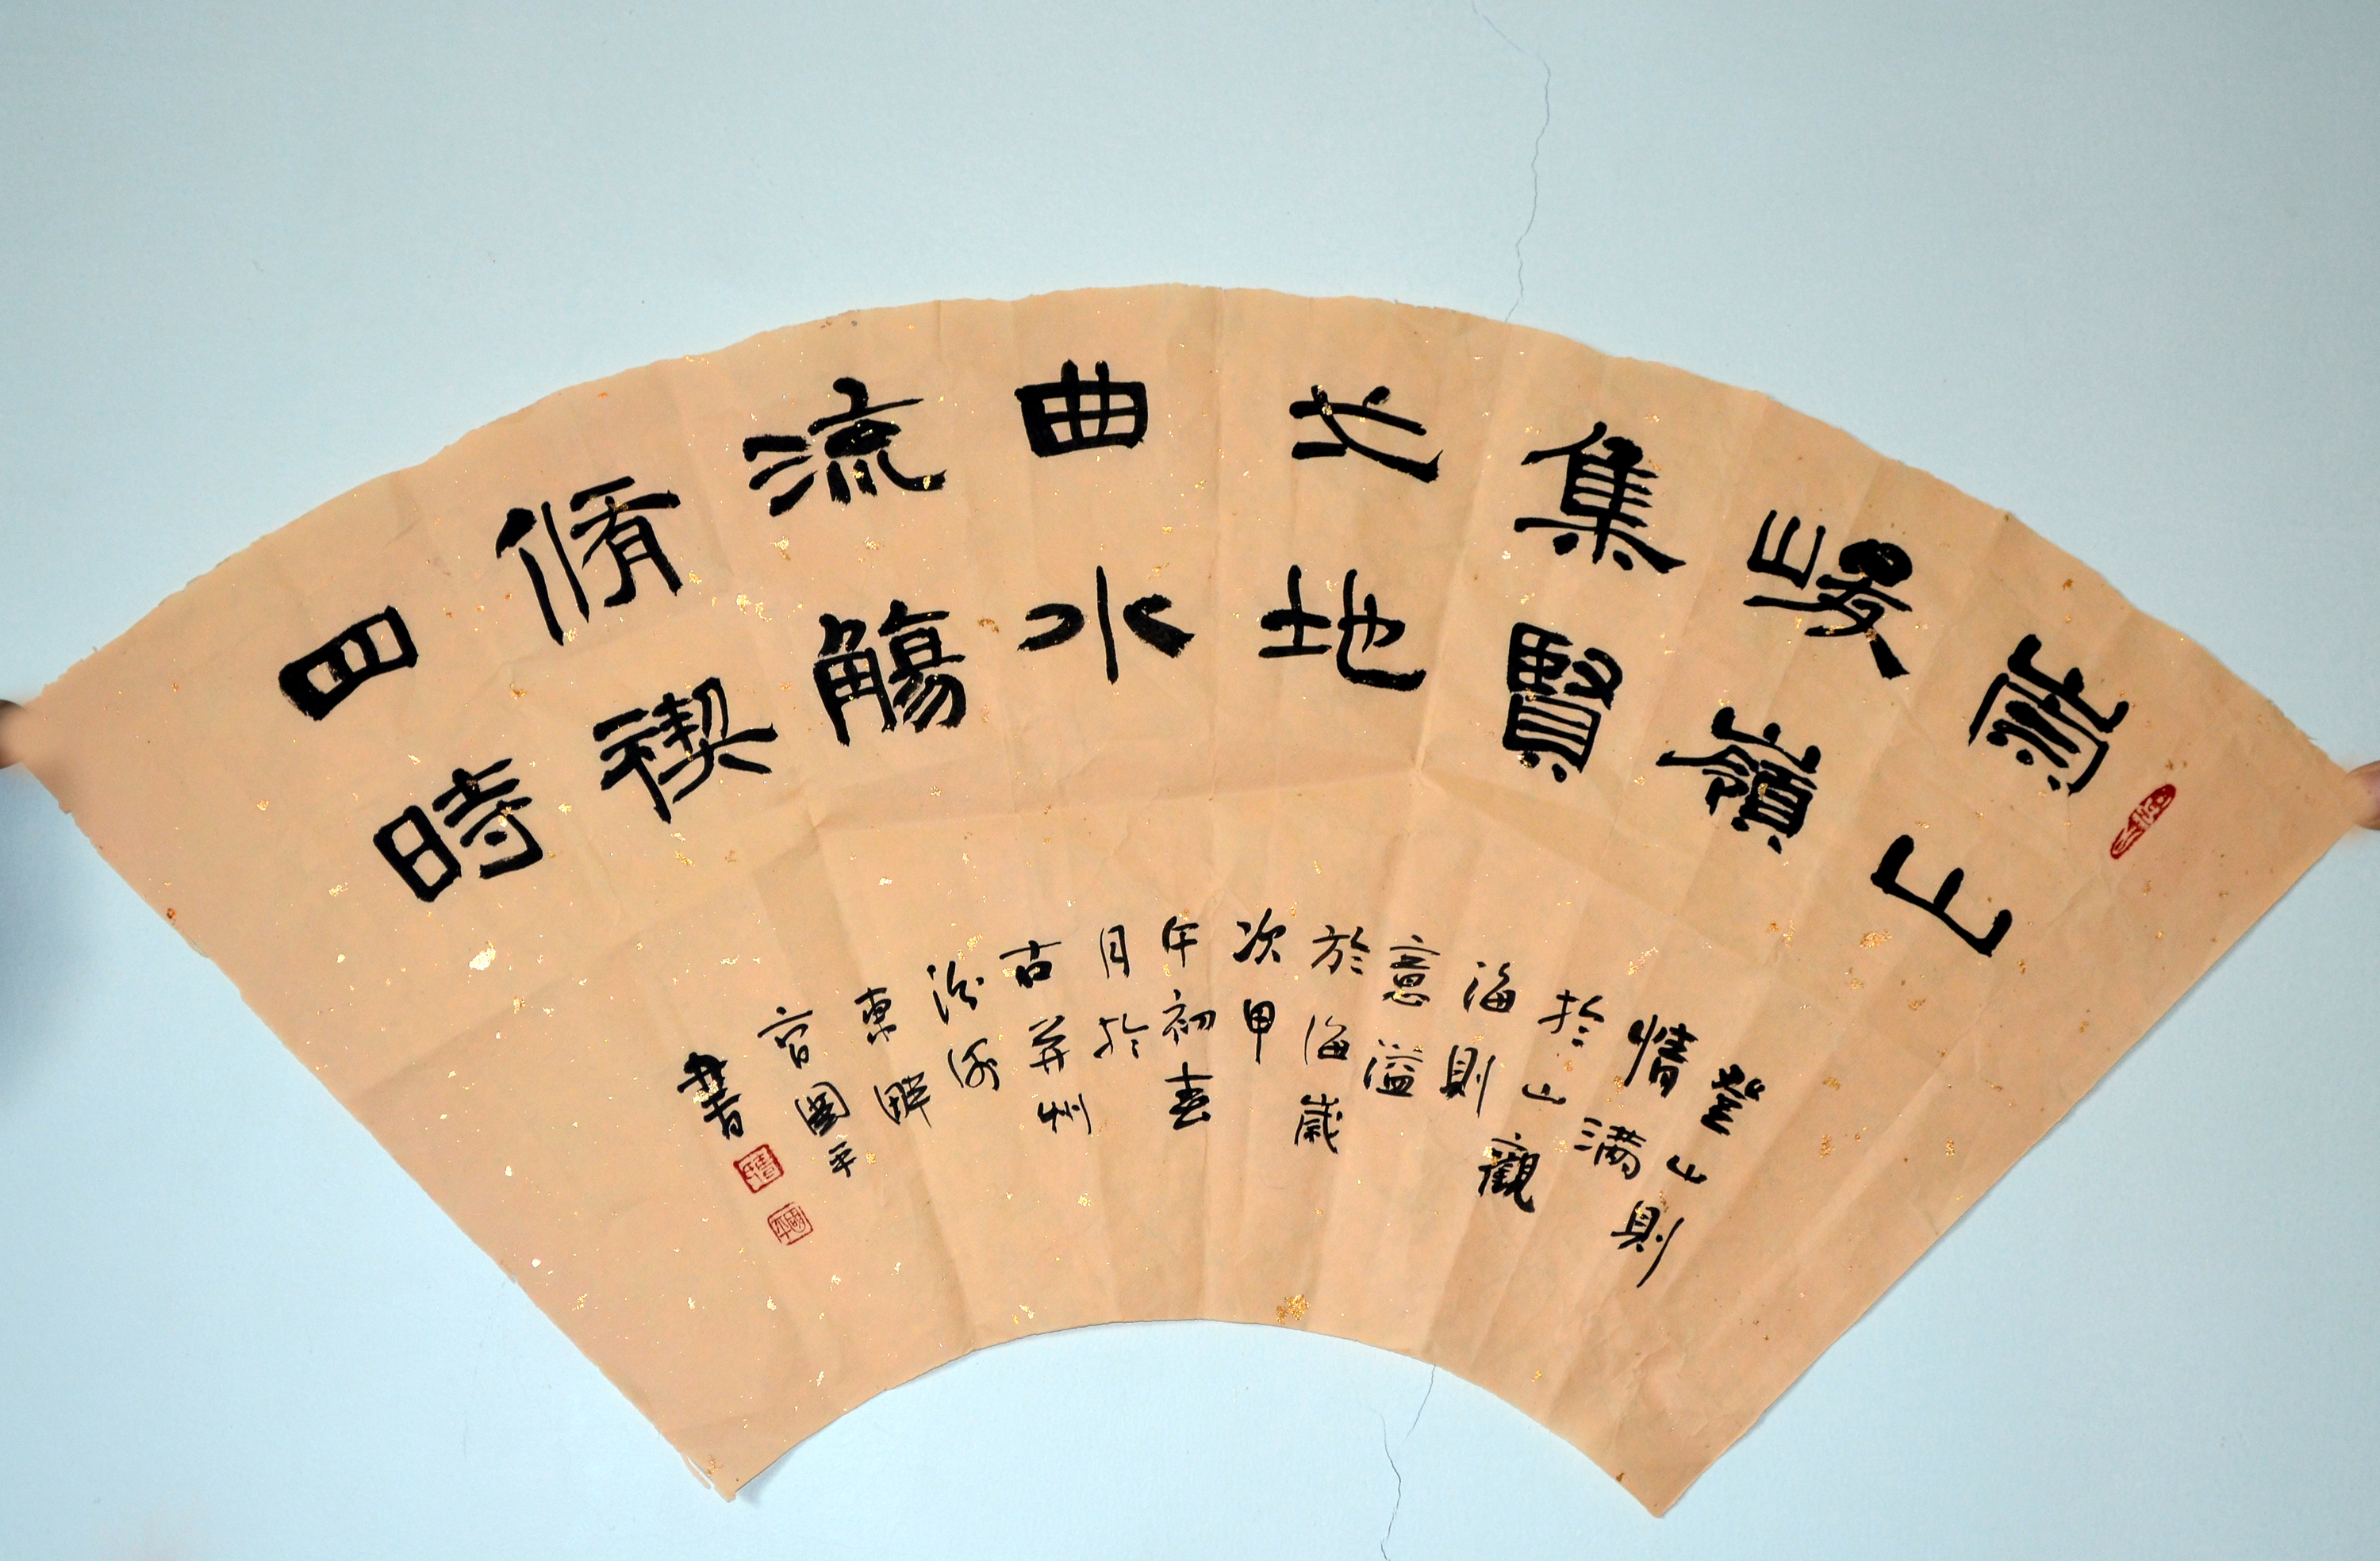 崇山
峻嶺
集賢
之地
曲水
流觴
脩禊
四時
登山則
情满
於山觀
海則
意溢
於海歲
次甲
午初春
月於
古并州
汾河
東畔
國平
書
國平